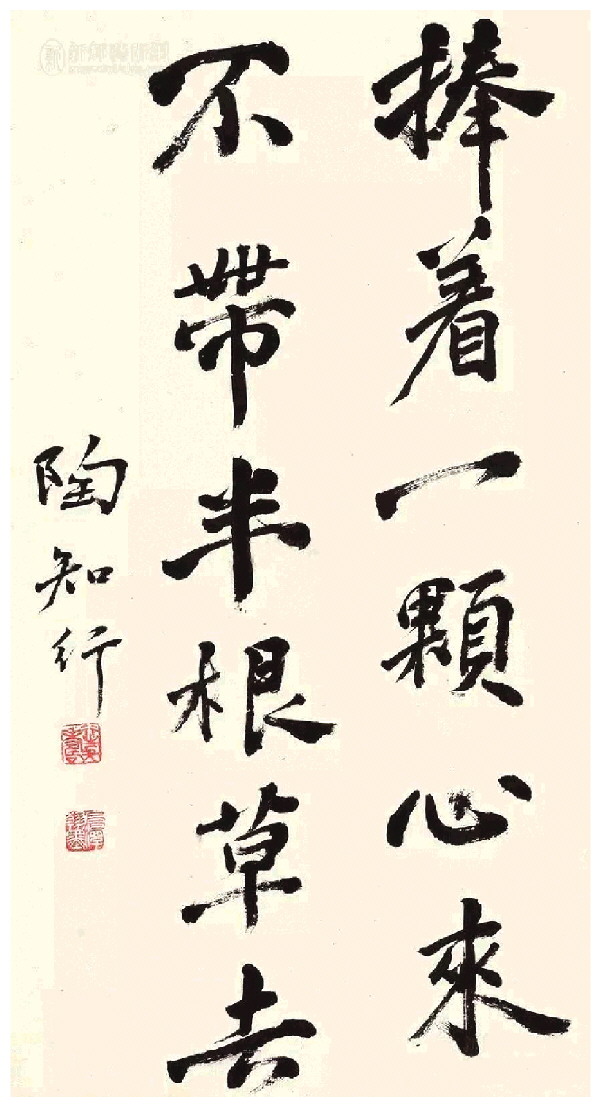 捧着一顆心來
不帶半根草去
陶知行